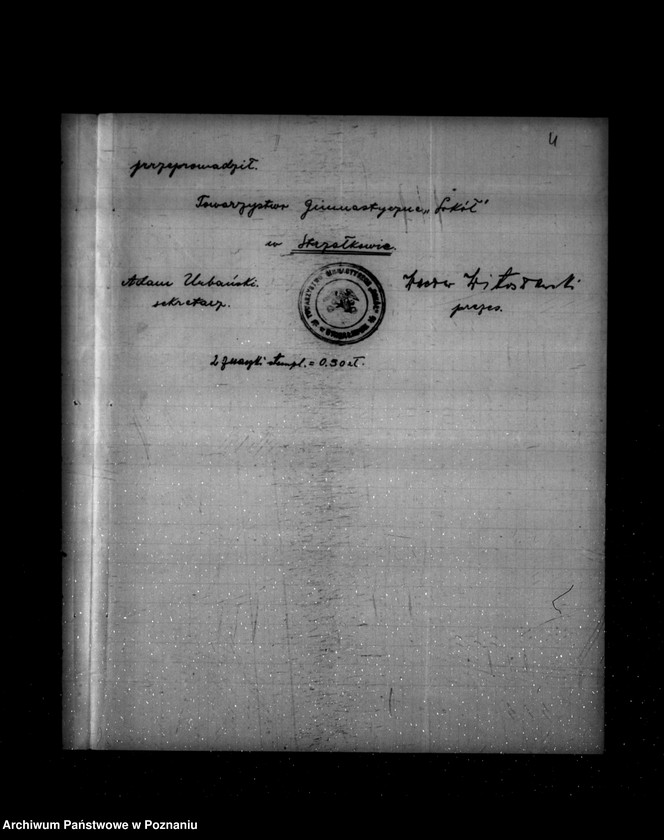 4
przeprowadził.
Towarzystwo Gimnastyczne „Sokół"
w Strzałkowie.
Adam Urbański.
sekretarz.
prezes.
2 znaczki stempl. = 0.30 zł.
Archiwum Państwowe w Poznaniu